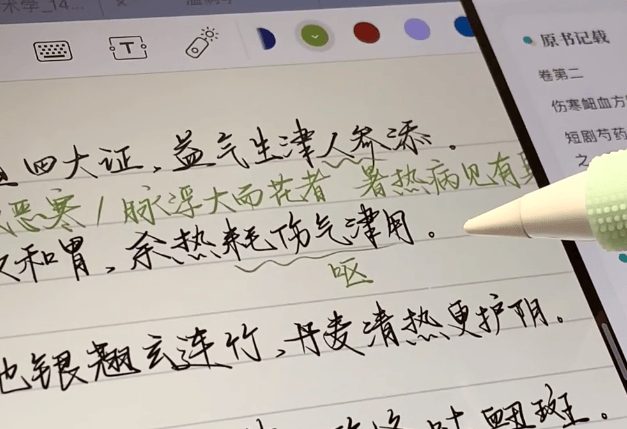 术学_14...
T
四大证，益气生津人参添。
恶寒/脉浮大而芤者 暑热病见有
和胃，余热耗伤气津用。
呕
银翘玄连竹，丹麦清热更护阴。
斑。
原书记载
卷第二
伤寒衄血方
短剧芍药
之